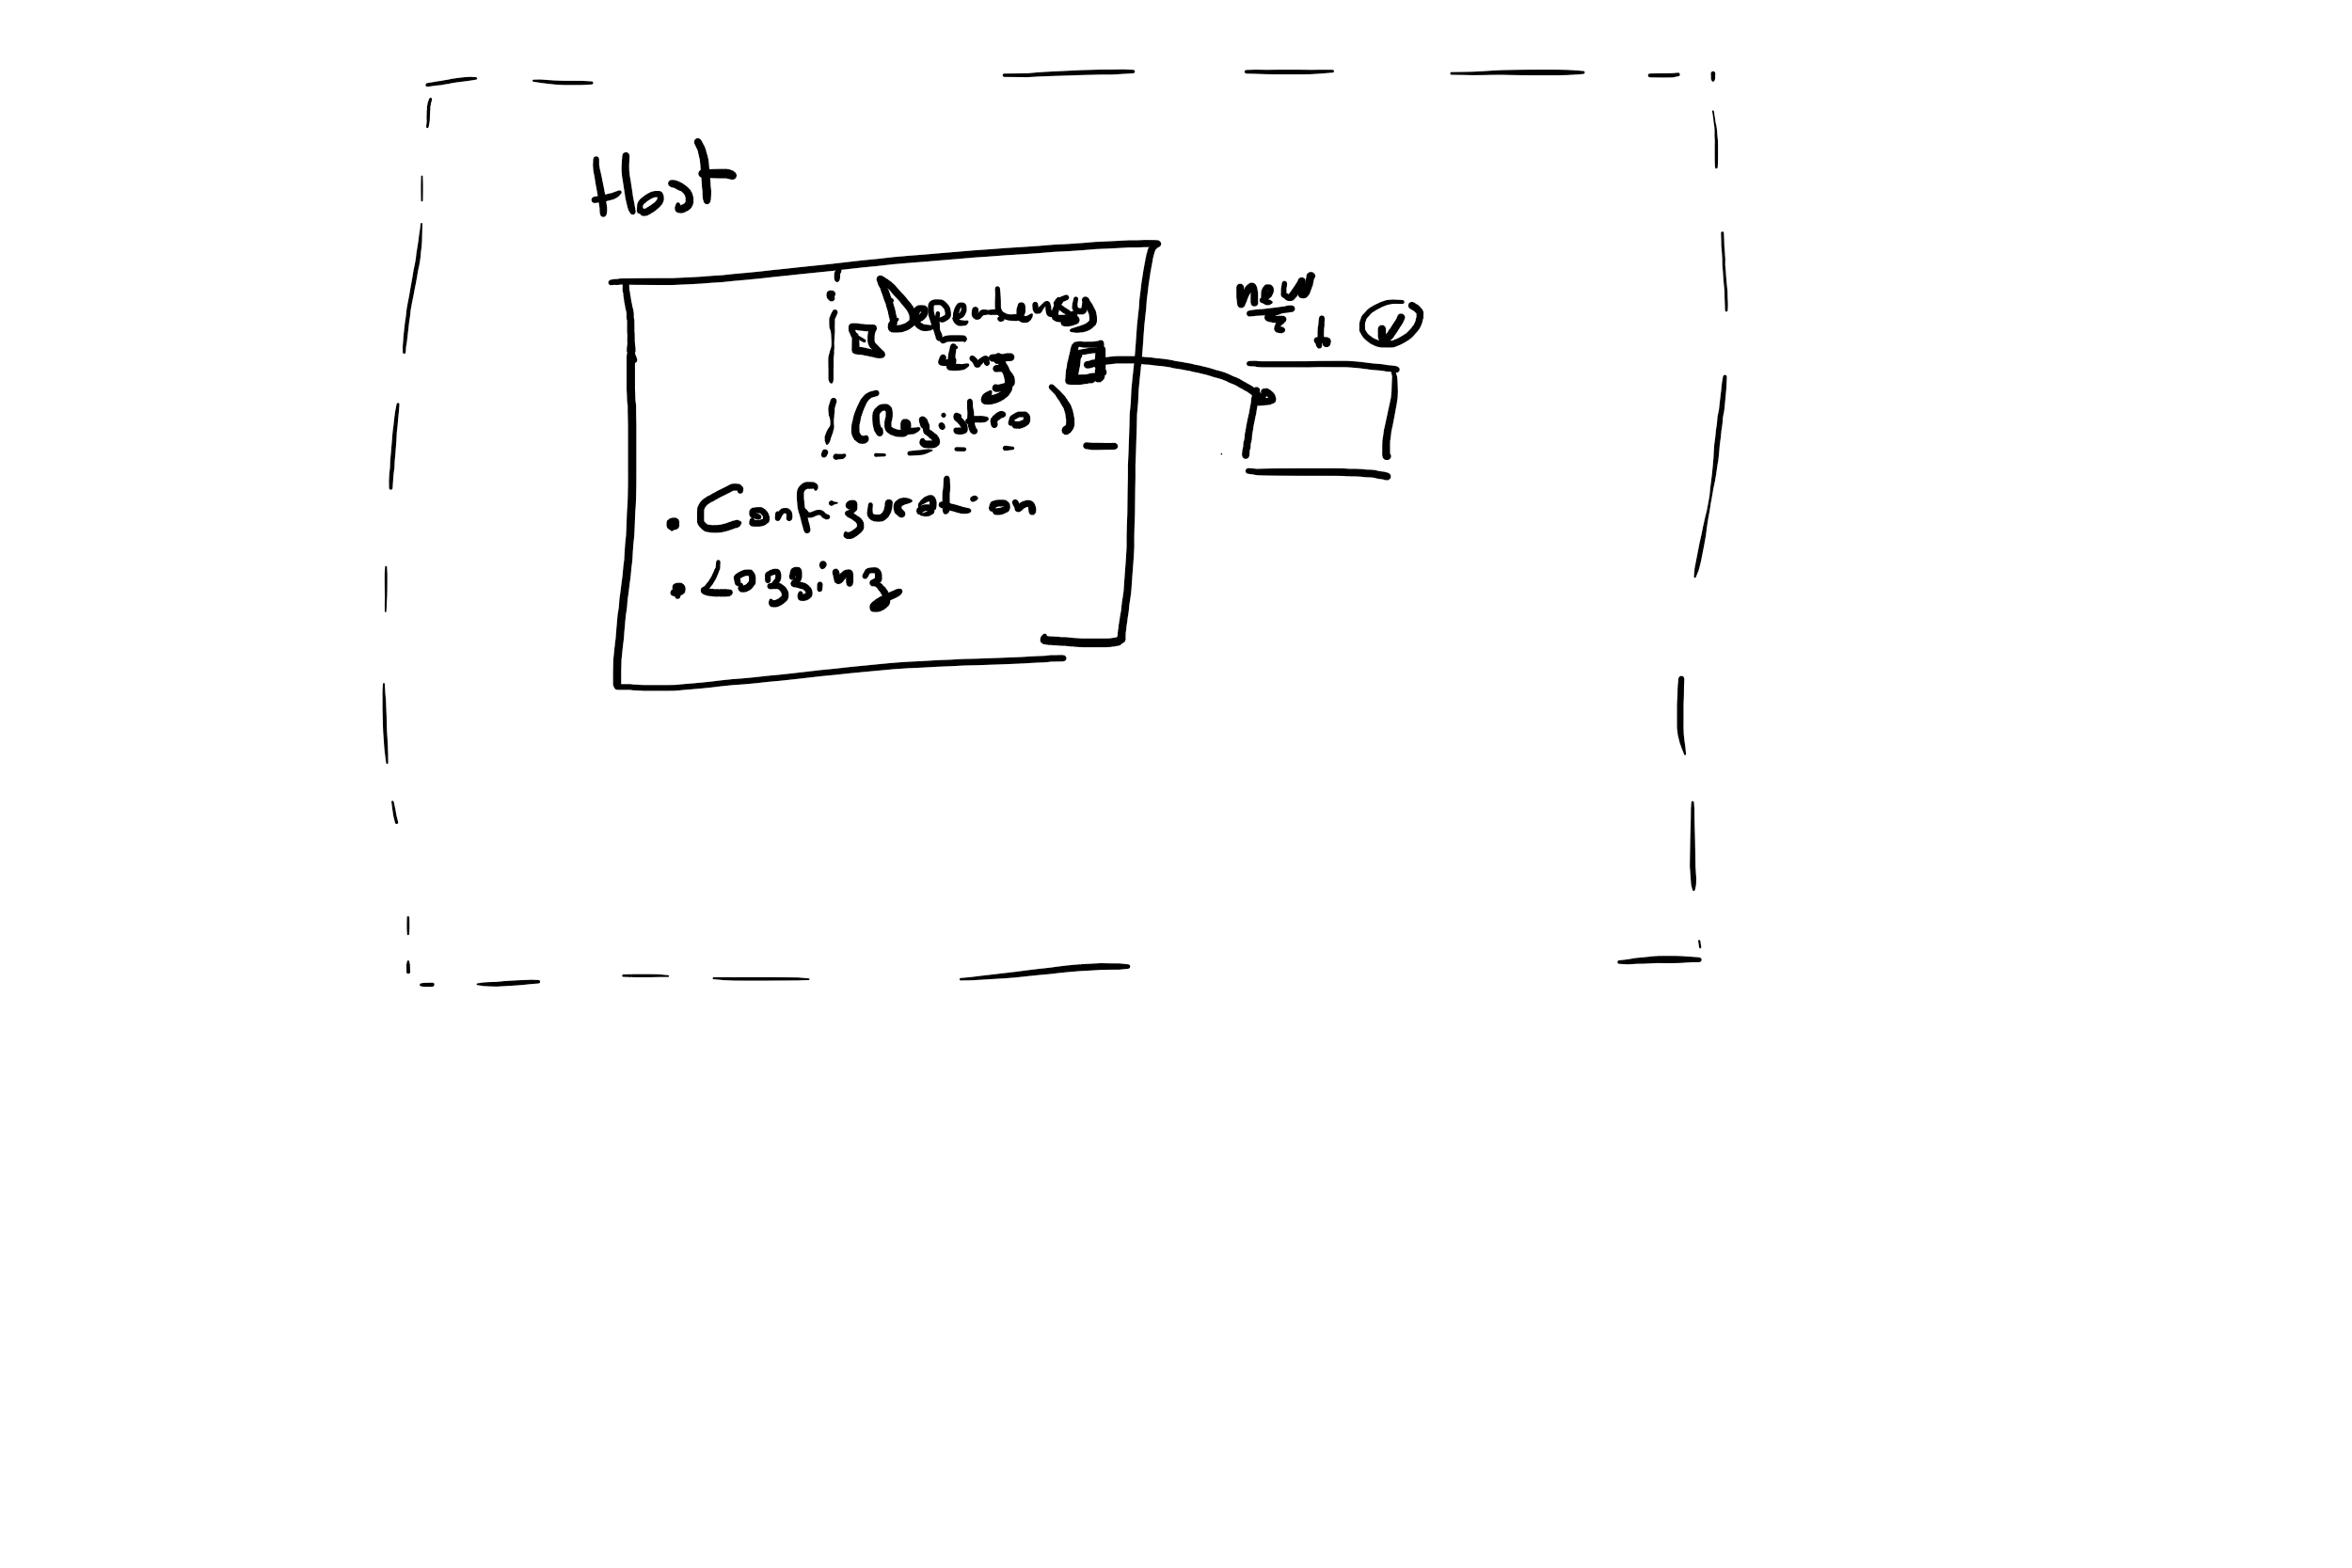 Host
Dependency
Inj
(Register)
• Configuration
• Logging
new